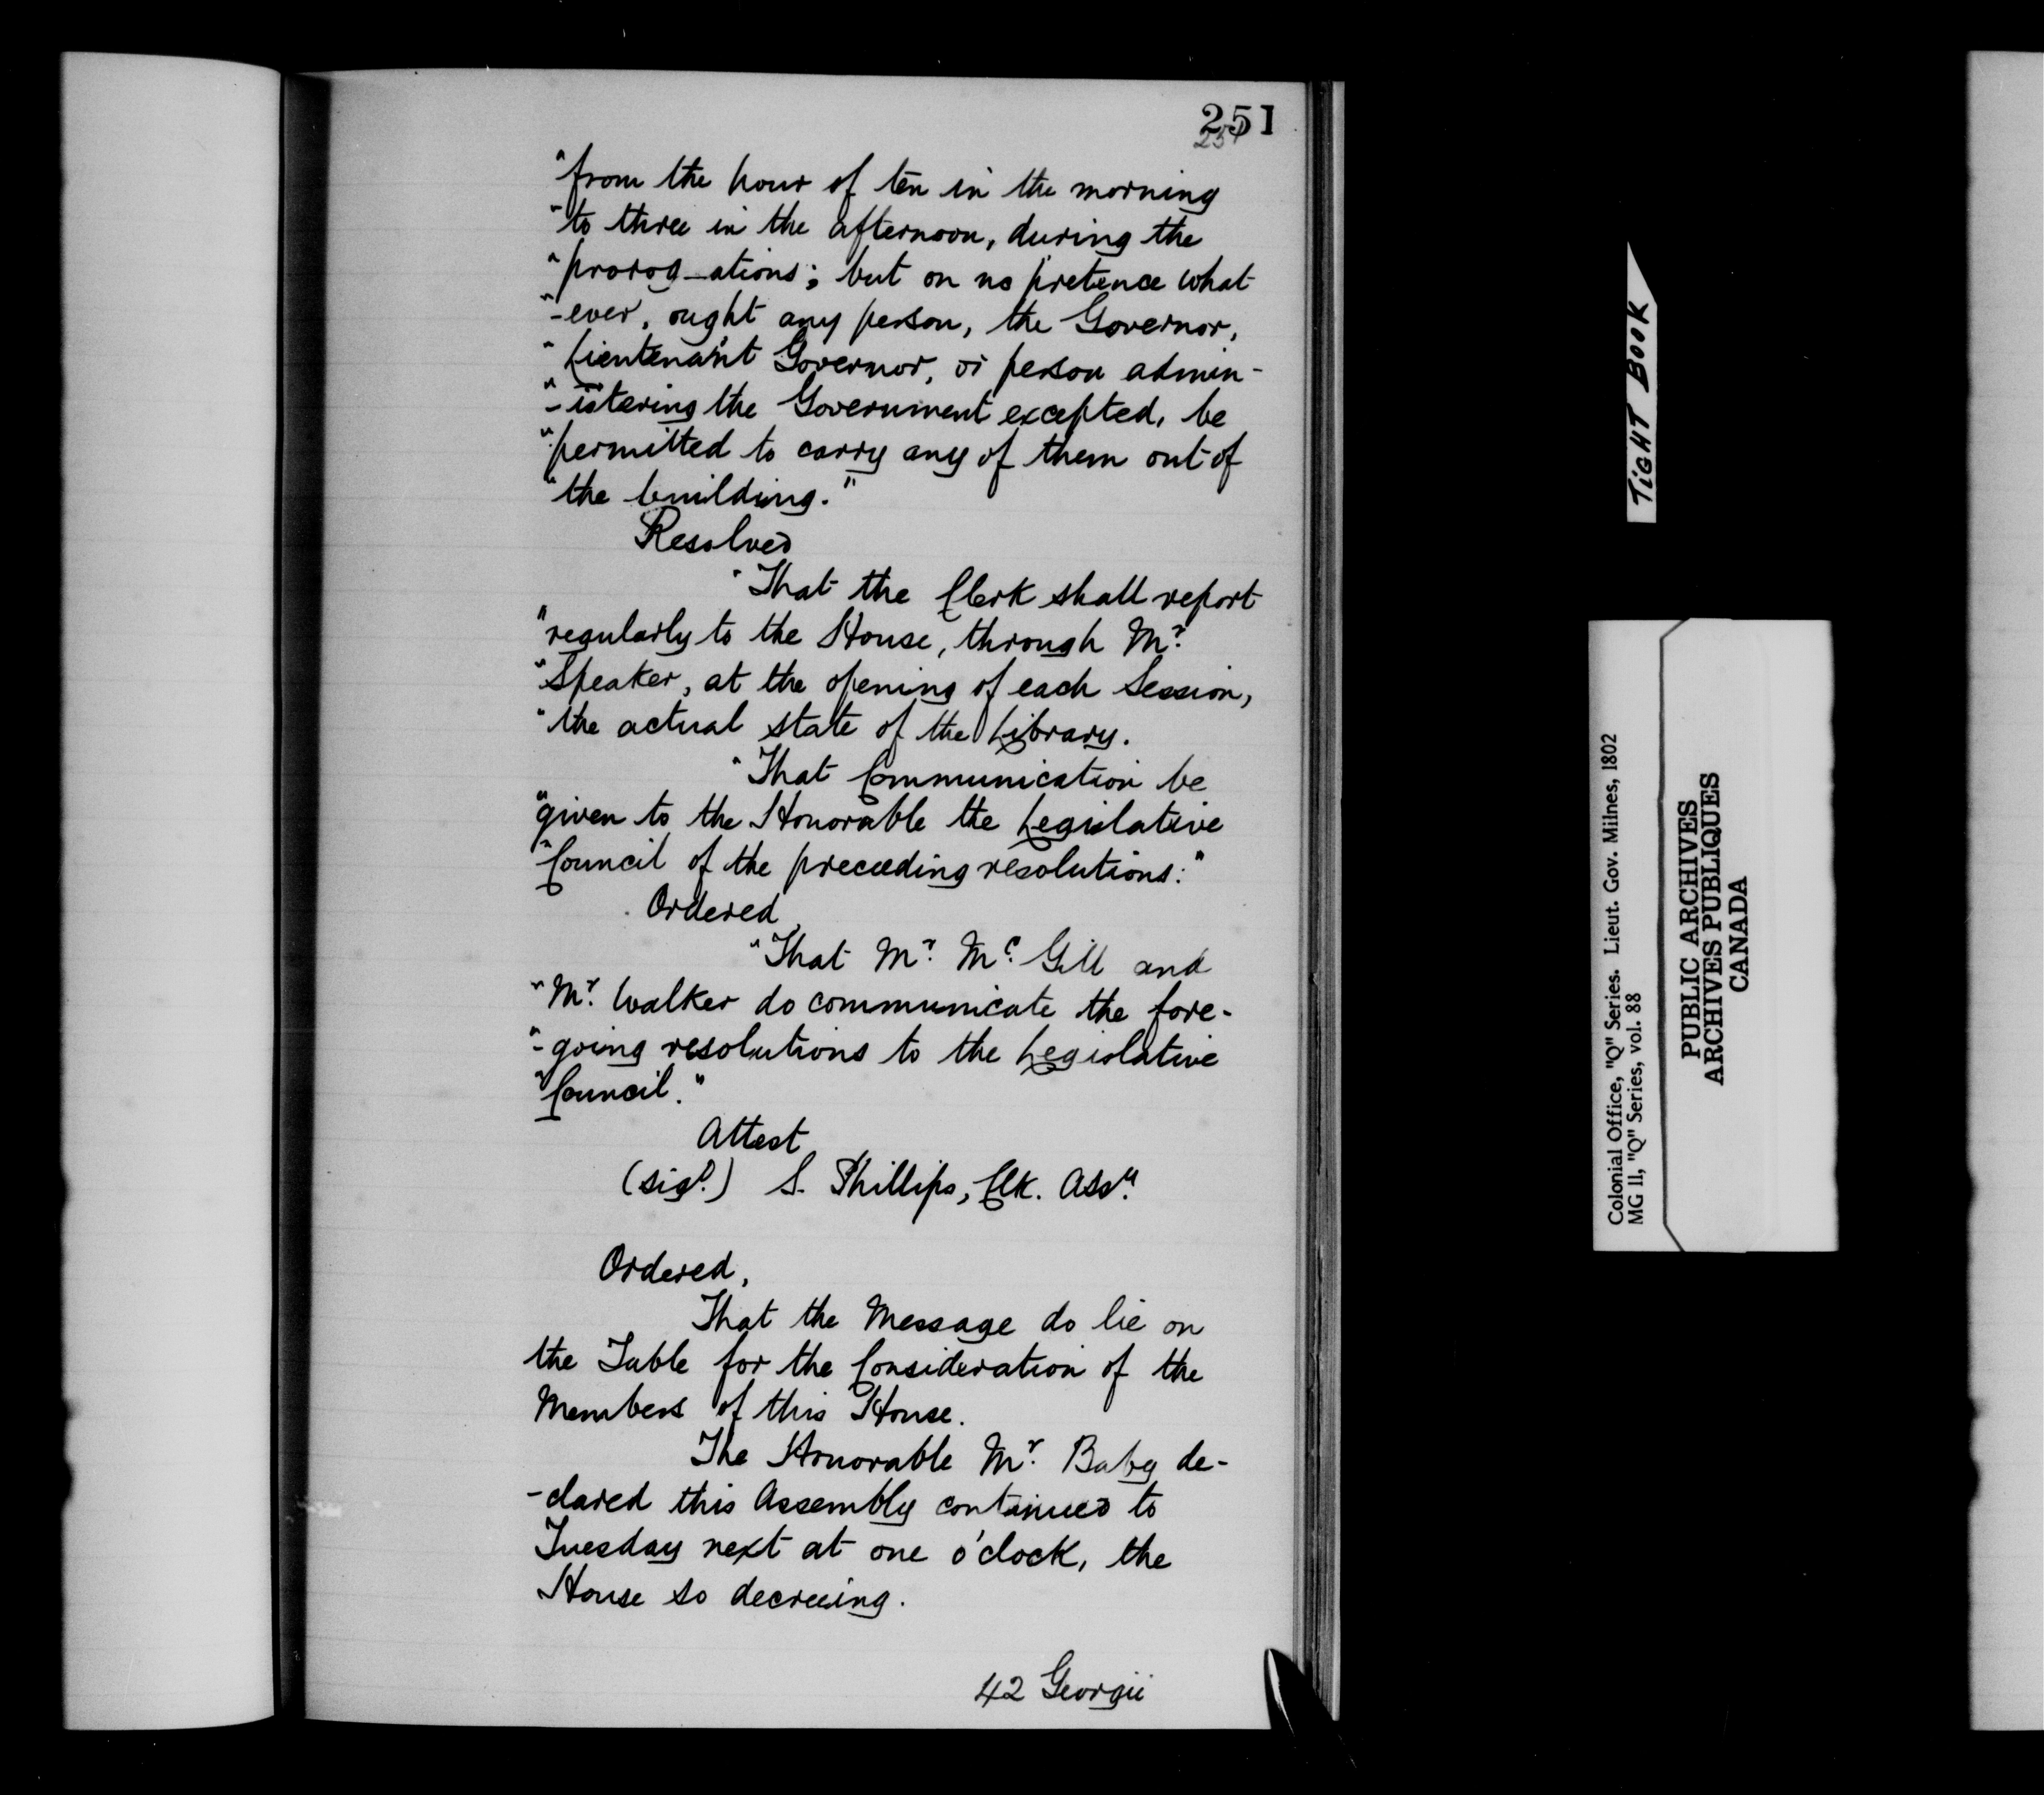 251
251
"from the hour of ten in the morning
"to three in the afternoon, during the
"prorog-ations; but on no pretence what-
"-ever, ought any person, the Governor,
"Lieutenant Governor, or person admin-
"-istering the Government excepted, be
"permitted to carry any of them out of
"the building."
Resolved
"That the Clerk shall report
"regularly to the House, through Mr.
"Speaker, at the opening of each Session,
"the actual state of the Library.
"That Communication be
"given to the Honorable the Legislative
"Council of the preceeding resolutions."
Ordered,
"That Mr. Mc. Gill and
"Mr. Walker do communicate the fore-
"-going resolutions to the Legislative
"Council."
Attest
(sigd.) S. Phillips, Clk. Assy.
Ordered,
That the Message do lie on
the Table for the Consideration of the
Members of this House.
The Honorable Mr. Baby de-
-clared this Assembly continued to
Tuesday next at one o'clock, the
House so decreeing.
42 Georgii
TIGHT BOOK
Colonial Office, "Q" Series. Lieut. Gov. Milnes, 1802
MG 11, "Q" Series, vol. 88
PUBLIC ARCHIVES
ARCHIVES PUBLIQUES
CANADA